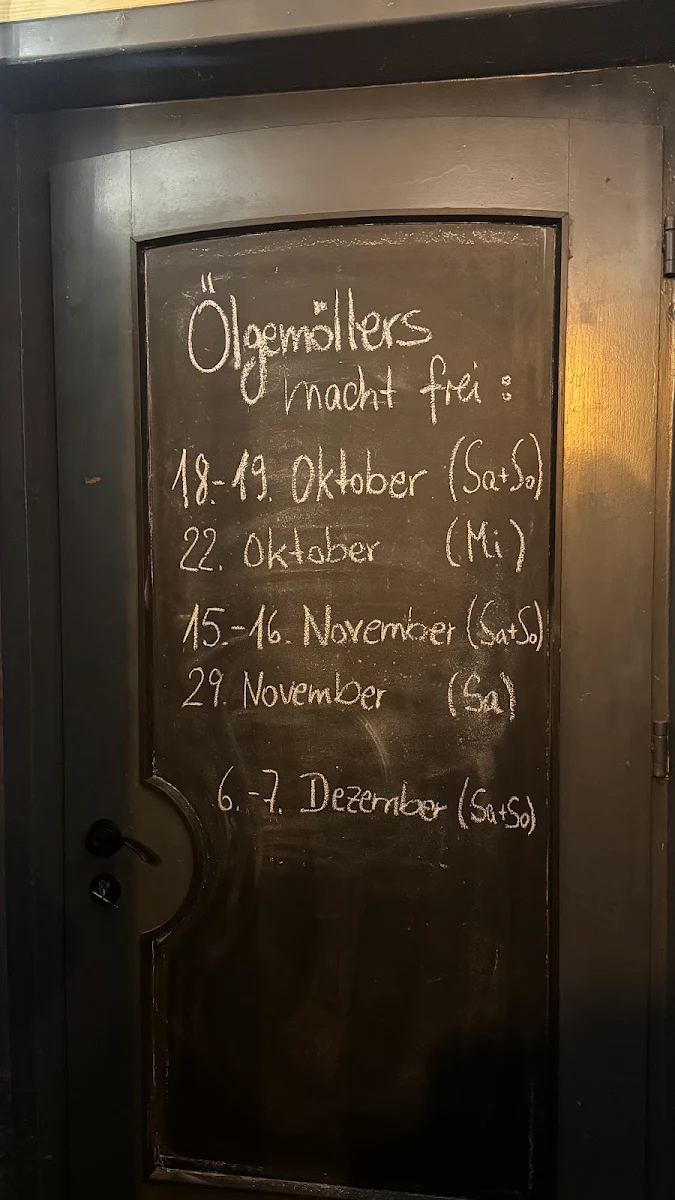 Ölgemöllers
macht frei :
18.-19. Oktober (Sa+So)
22. Oktober (Mi)
15.-16. November (Sa+So)
29. November (Sa)
6.-7. Dezember (Sa+So)